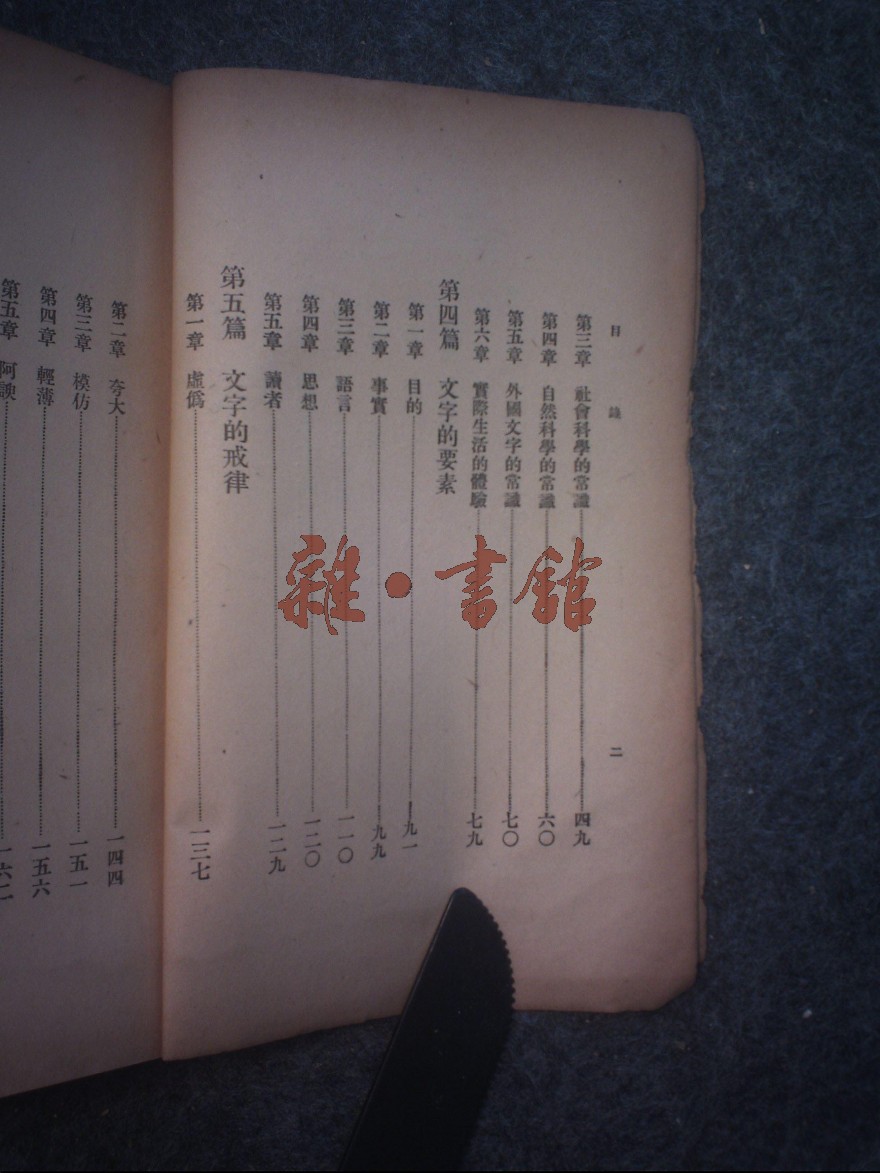 目錄
二
第三章 社會科學的常識 四九
第四章 自然科學的常識 六〇
第五章 外國文字的常識 七〇
第六章 實際生活的體驗 七九
第四篇 文字的要素
第一章 目的 九一
第二章 事實 九九
第三章 語言 一一〇
第四章 思想 一二〇
第五章 讀者 一二九
第五篇 文字的戒律
第一章 虛僞 一三七
第二章 夸大 一四四
第三章 模仿 一五一
第四章 輕薄 一五六
第五章 阿諛
雜·書館